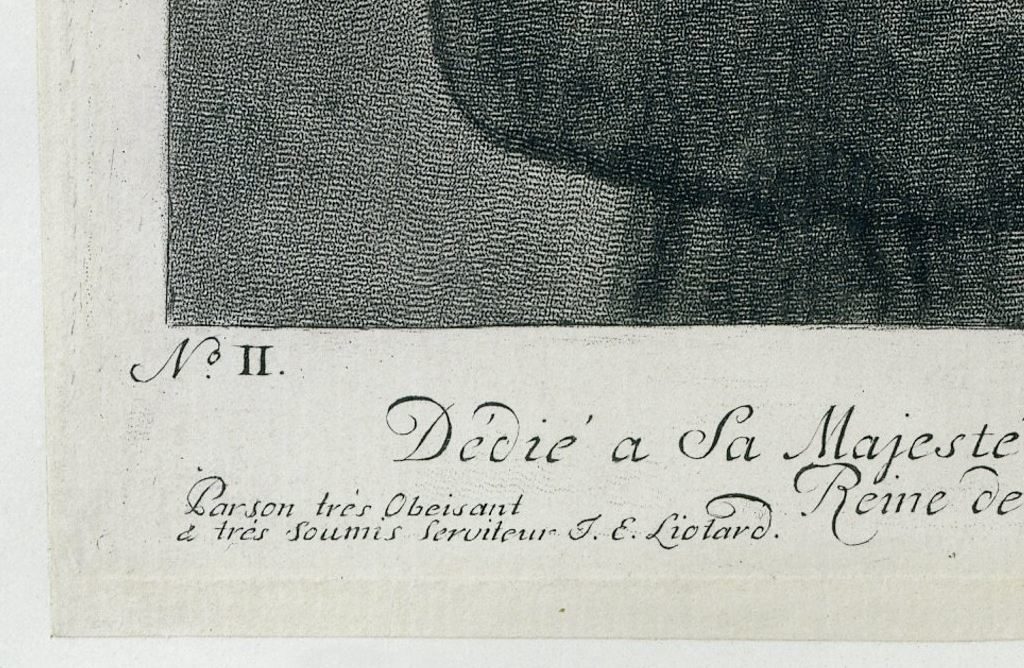 No. II.
Dédié a Sa Majesté
Reine de
Parson trés Obeisant
& trés Soumis Serviteur J. E. Liotard.